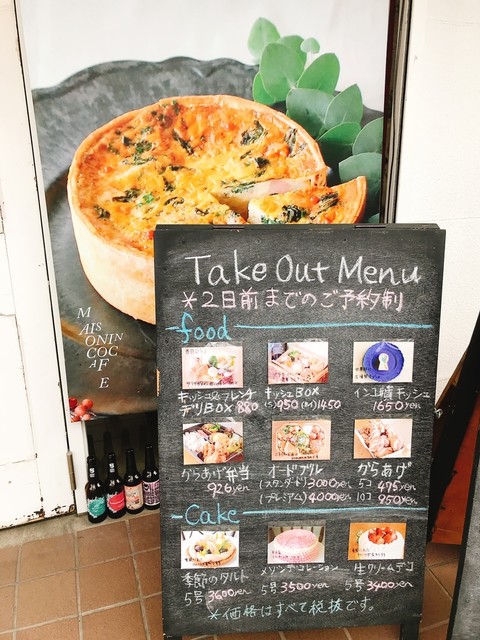 M
AIS
ONIN
COC
AF
E
Take Out Menu
＊2日前までのご予約制
food
キッシュ&フレンチ
デリBOX 880
キッシュBOX
(S)950 (M)1450
インコ缶キッシュ
1650yen
からあげ弁当
926yen
オードブル
(スタンダード)3000yen
(プレミアム)4000yen
からあげ
5コ 475yen
10コ 950yen
Cake
季節のタルト
5号 3600yen
メゾンデコレーション
5号 3500yen
生クリームデコ
5号 3400yen
＊価格はすべて税抜です。